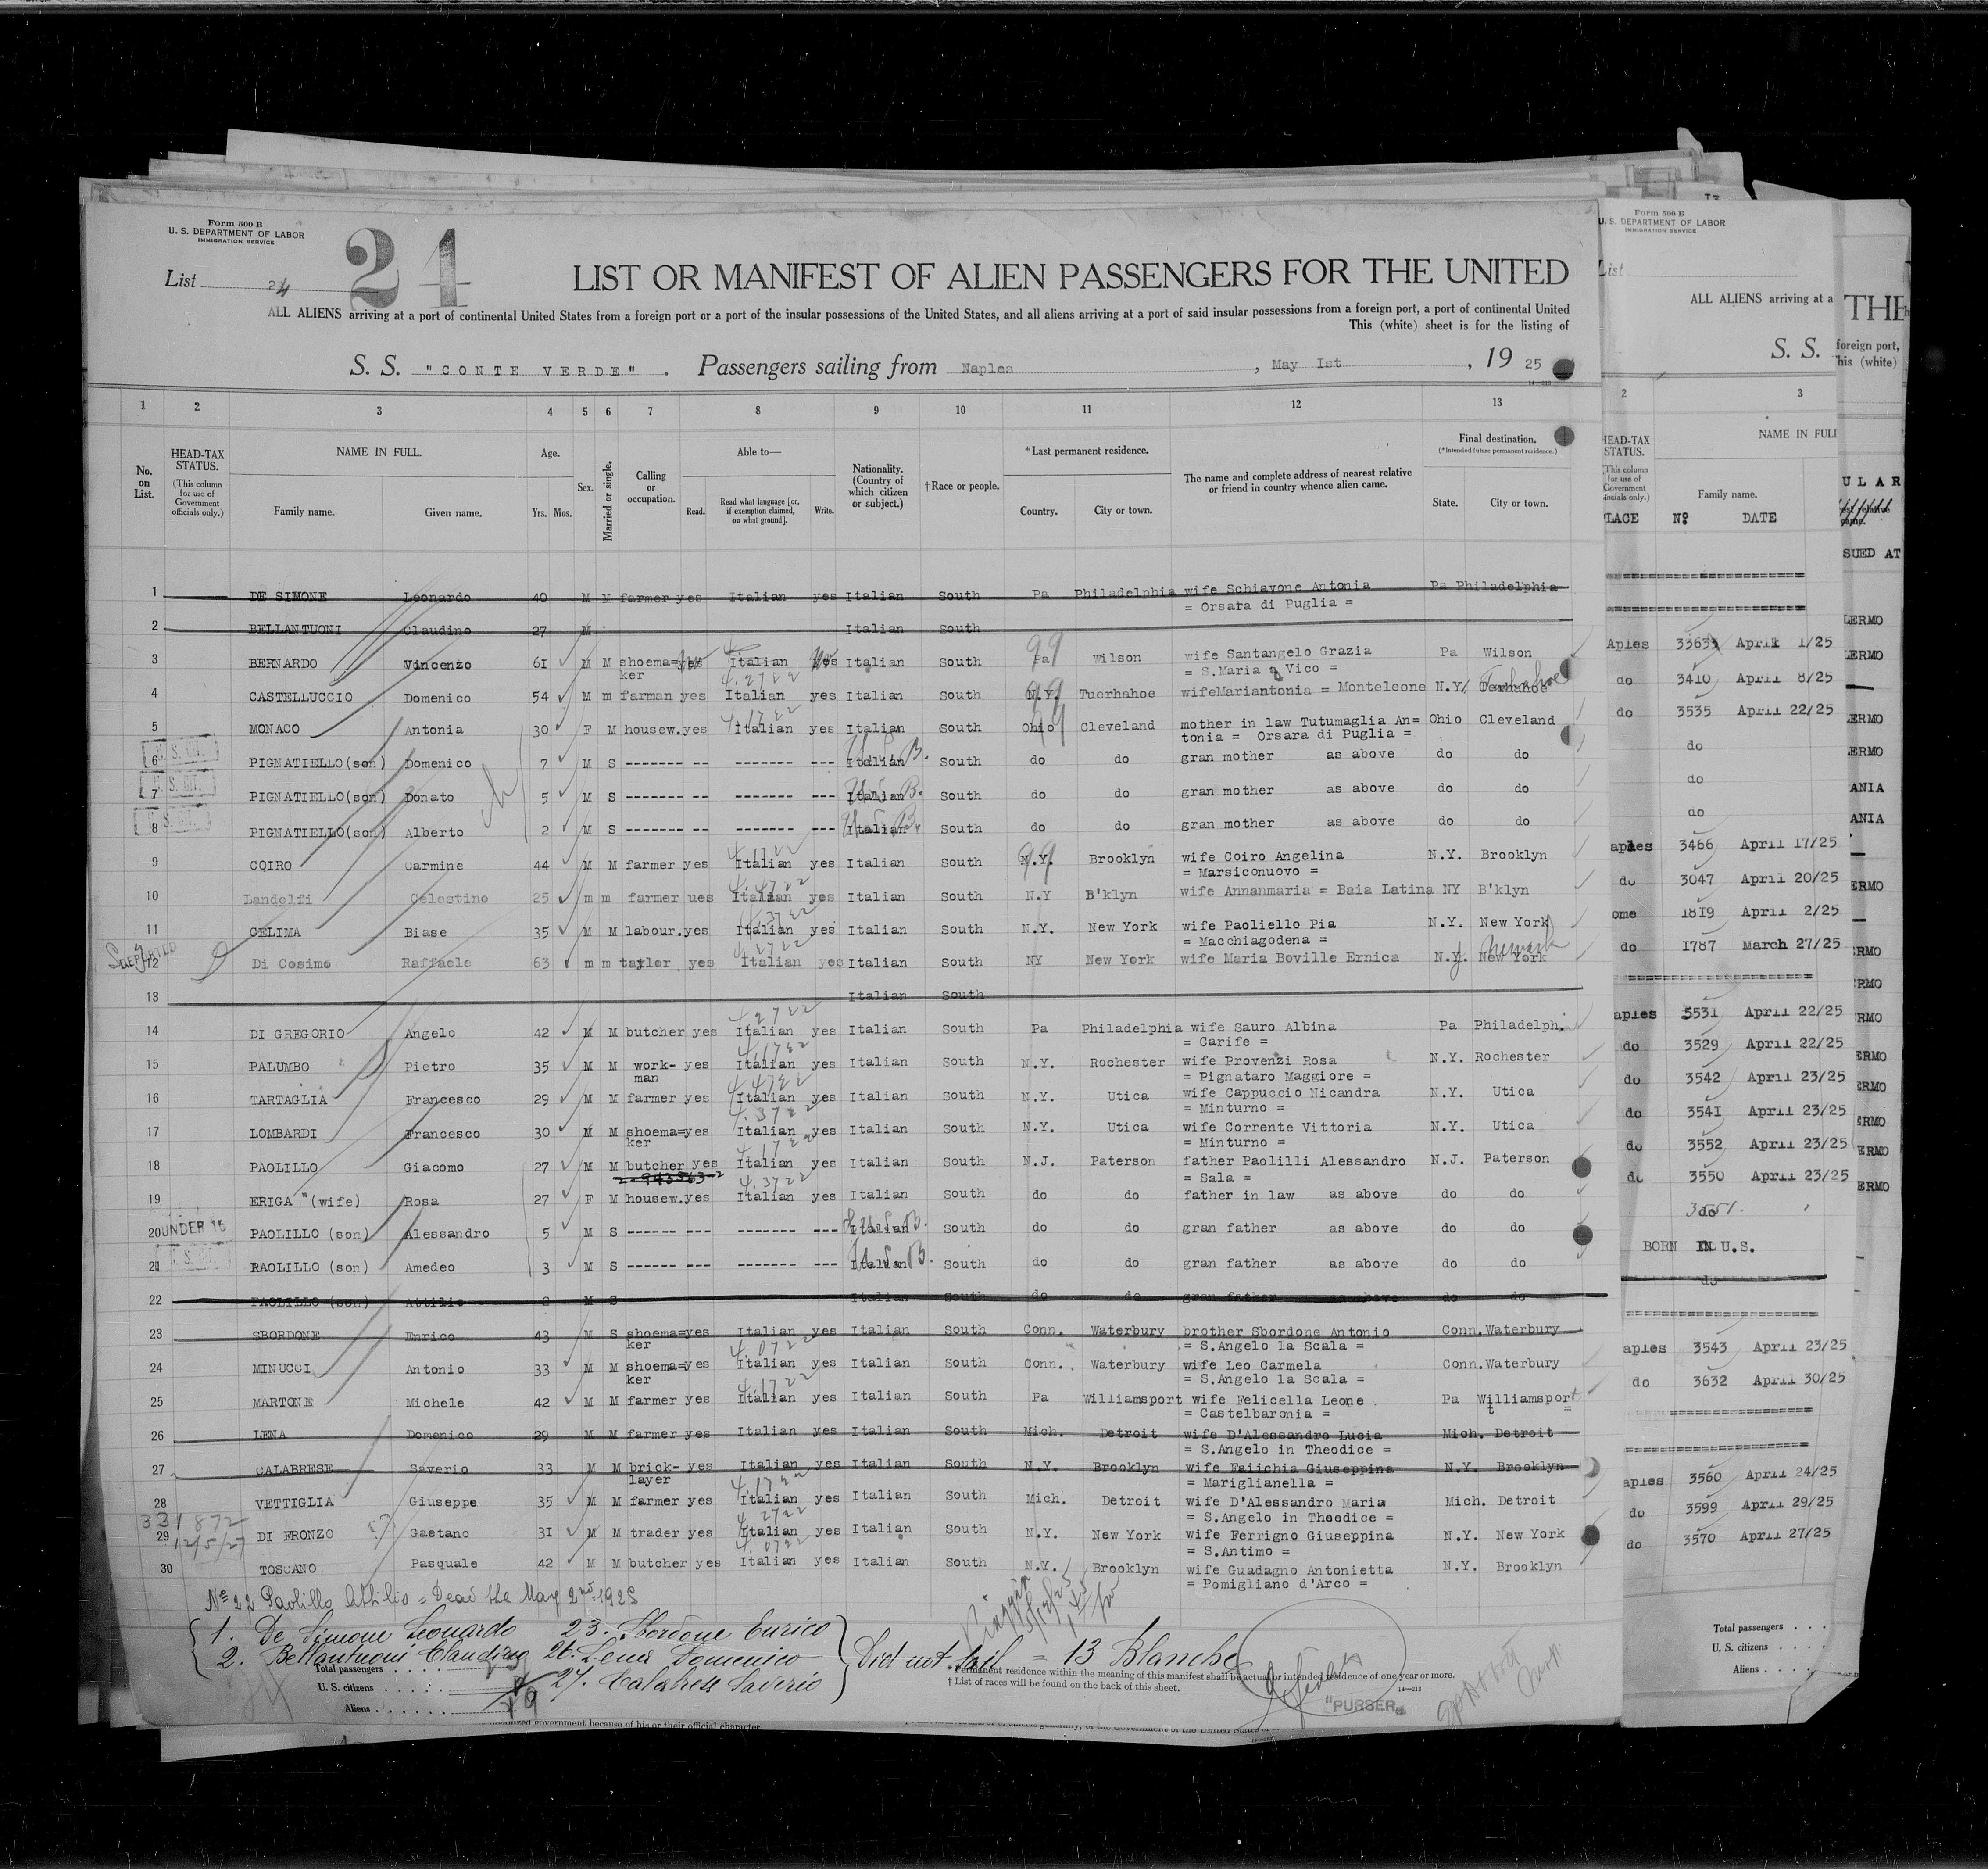 Form 500 B
U. S. DEPARTMENT OF LABOR
IMMIGRATION SERVICE
List 24
24
LIST OR MANIFEST OF ALIEN PASSENGERS FOR THE UNITED
ALL ALIENS arriving at a port of continental United States from a foreign port or a port of the insular possessions of the United States, and all aliens arriving at a port of said insular possessions from a foreign port, a port of continental United
This (white) sheet is for the listing of
S. S. "CONTE VERDE" . Passengers sailing from Naples , May Ist , 19 25
14—213
1 2 3 4 5 6 7 8 9 10 11 12 13
No. on List.
HEAD-TAX STATUS.
(This column for use of Government officials only.)
NAME IN FULL.
Family name. Given name.
Age.
Yrs. Mos.
Sex.
Married or single.
Calling or occupation.
Able to—
Read. Read what language [or, if exemption claimed, on what ground]. Write.
Nationality. (Country of which citizen or subject.)
†Race or people.
*Last permanent residence.
Country. City or town.
The name and complete address of nearest relative or friend in country whence alien came.
Final destination.
(*Intended future permanent residence.)
State. City or town.
1 DE SIMONE Leonardo 40 M M farmer yes Italian yes Italian South Pa Philadelphia wife Schiavone Antonia Pa Philadelphia
= Orsara di Puglia =
2 BELLANTUONI Claudino 27 M Italian South
3 BERNARDO Vincenzo 61 M M shoema= Italian Italian South Pa 99 Wilson wife Santangelo Grazia Pa Wilson
ker = S.Maria a Vico =
4 CASTELLUCCIO Domenico 54 M m farman yes Italian yes Italian South N.Y. 99 Tuerhahoe wifeMariantonia = Monteleone N.Y.
5 MONACO Antonia 30 F M housew.yes Italian yes Italian South Ohio Cleveland mother in law Tutumaglia An= Ohio Cleveland
tonia = Orsara di Puglia =
6 PIGNATIELLO(son) Domenico 7 M S ------- -- ------- --- Italian U.S.B. South do do gran mother as above do do
7 PIGNATIELLO(son) Donato 5 M S ------- -- ------- --- Italian U.S.B. South do do gran mother as above do do
8 PIGNATIELLO(son) Alberto 2 M S ------- -- ------- --- Italian U.S.B. South do do gran mother as above do do
9 COIRO Carmine 44 M M farmer yes Italian yes Italian South N.Y. 99 Brooklyn wife Coiro Angelina N.Y. Brooklyn
= Marsiconuovo =
10 Landolfi Celestino 25 m m farmer ues Italian yes Italian South N.Y B'klyn wife Annanmaria = Baia Latina NY B'klyn
11 CELIMA Biase 35 M M labour.yes Italian yes Italian South N.Y. New York wife Paoliello Pia N.Y. New York
= Macchiagodena =
DEPORTED
12 Di Cosimo Raffaele 63 m m taylor yes Italian yes Italian South NY New York wife Maria Boville Ernica N.J. New York Newark
13 Italian South
14 DI GREGORIO Angelo 42 M M butcher yes Italian yes Italian South Pa Philadelphia wife Sauro Albina Pa Philadelph.
= Carife =
15 PALUMBO Pietro 35 M M work- yes Italian yes Italian South N.Y. Rochester wife Provenzi Rosa N.Y. Rochester
man = Pignataro Maggiore =
16 TARTAGLIA Francesco 29 M M farmer yes Italian yes Italian South N.Y. Utica wife Cappuccio Nicandra N.Y. Utica
= Minturno =
17 LOMBARDI Francesco 30 M M shoema=yes Italian yes Italian South N.Y. Utica wife Corrente Vittoria N.Y. Utica
ker = Minturno =
18 PAOLILLO Giacomo 27 M M butcher yes Italian yes Italian South N.J. Paterson father Paolilli Alessandro N.J. Paterson
= Sala =
19 ERIGA "(wife) Rosa 27 F M housew.yes Italian yes Italian South do do father in law as above do do
20 UNDER 16 PAOLILLO (son) Alessandro 5 M S ------ -- ------- --- Italian U.S.B. South do do gran father as above do do
21 PAOLILLO (son) Amedeo 3 M S ------ -- ------- --- Italian U.S.B. South do do gran father as above do do
22 PAOLILLO (son) Attilio 2 M S Italian South do do gran father as above do do
23 SBORDONE Enrico 43 M S shoema=yes Italian yes Italian South Conn. Waterbury brother Sbordone Antonio Conn. Waterbury
ker = S.Angelo la Scala =
24 MINUCCI Antonio 33 M M shoema=yes Italian yes Italian South Conn. Waterbury wife Leo Carmela Conn. Waterbury
ker = S.Angelo la Scala =
25 MARTONE Michele 42 M M farmer yes Italian yes Italian South Pa Williamsport wife Felicella Leone Pa Williamsport
= Castelbaronia =
26 LENA Domenico 29 M M farmer yes Italian yes Italian South Mich. Detroit wife D'Alessandro Lucia Mich. Detroit
= S.Angelo in Theodice =
27 CALABRESE Saverio 33 M M brick- yes Italian yes Italian South N.Y. Brooklyn wife Faiichia Giuseppina N.Y. Brooklyn
layer = Mariglianella =
28 VETTIGLIA Giuseppe 35 M M farmer yes Italian yes Italian South Mich. Detroit wife D'Alessandro Maria Mich. Detroit
= S.Angelo in Theodice =
331872
29 12/5/27 DI FRONZO Gaetano 31 M M trader yes Italian yes Italian South N.Y. New York wife Ferrigno Giuseppina N.Y. New York
= S.Antimo =
30 TOSCANO Pasquale 42 M M butcher yes Italian yes Italian South N.Y. Brooklyn wife Guadagno Antonietta N.Y. Brooklyn
= Pomigliano d'Arco =
Nº 22 Paolillo Attilio = Dead the May 2nd 1925
1. De Simone Leonardo 23. Sbordone Enrico
2. Bellantuoni Claudino 26. Lena Domenico
27. Calabrese Saverio
Did not sail = 13 Blanche
Total passengers
U. S. citizens
Aliens 19
* Permanent residence within the meaning of this manifest shall be actual or intended residence of one year or more.
† List of races will be found on the back of this sheet.
14—213
"PURSER"
Form 500 B
U. S. DEPARTMENT OF LABOR
IMMIGRATION SERVICE
List
ALL ALIENS arriving at a
S. S.
2 3
HEAD-TAX STATUS.
(This column for use of Government officials only.)
NAME IN FULL
Family name.
PLACE Nº DATE
Aples 33635 April 1/25
do 3410 April 8/25
do 3535 April 22/25
do
do
do
aples 3466 April 17/25
do 3047 April 20/25
ome 1819 April 2/25
do 1787 March 27/25
aples 5531 April 22/25
do 3529 April 22/25
do 3542 April 23/25
do 3541 April 23/25
do 3552 April 23/25
do 3550 April 23/25
do 3551.
BORN IN U.S.
do
aples 3543 April 23/25
do 3632 April 30/25
aples 3560 April 24/25
do 3599 April 29/25
do 3570 April 27/25
Total passengers
U. S. citizens
Aliens
THE
foreign port,
This (white)
ULAR
SUED AT
LERMO
LERMO
ERMO
ERMO
ANIA
ANIA
ERMO
ERMO
RMO
RMO
ERMO
ERMO
ERMO
ERMO
ERMO